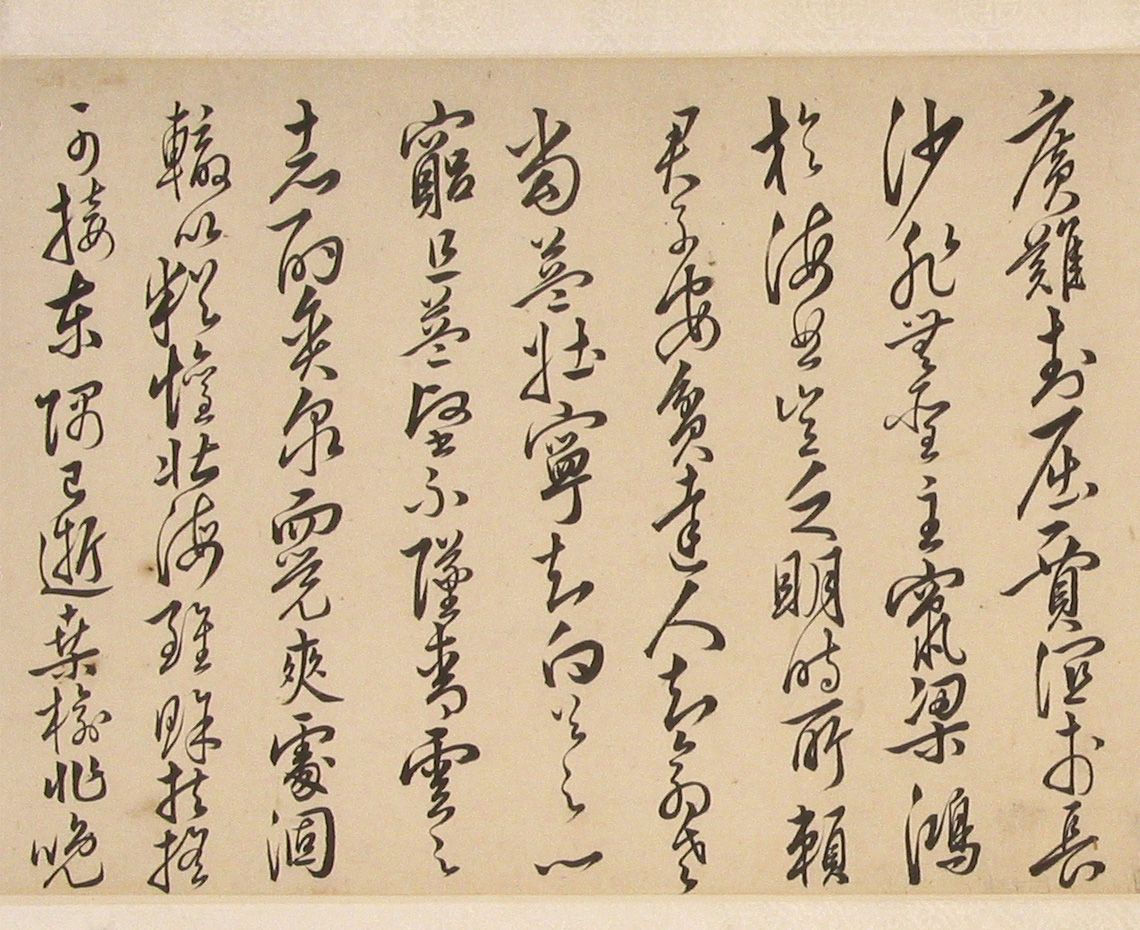 廣難封屈賈誼於長
沙非無聖主竄梁鴻
於海曲豈乏明時所賴
君子安貧達人知命老
當益壯寧知白首之心
窮且益堅不墜青雲之
志酌貪泉而覺爽處涸
轍以猶懽北海雖賒扶搖
可接東隅已逝桑榆非晚